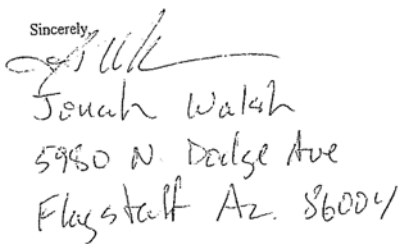 Sincerely,
Jonah Walsh
5980 N. Dodge Ave
Flagstaff Az. 86004